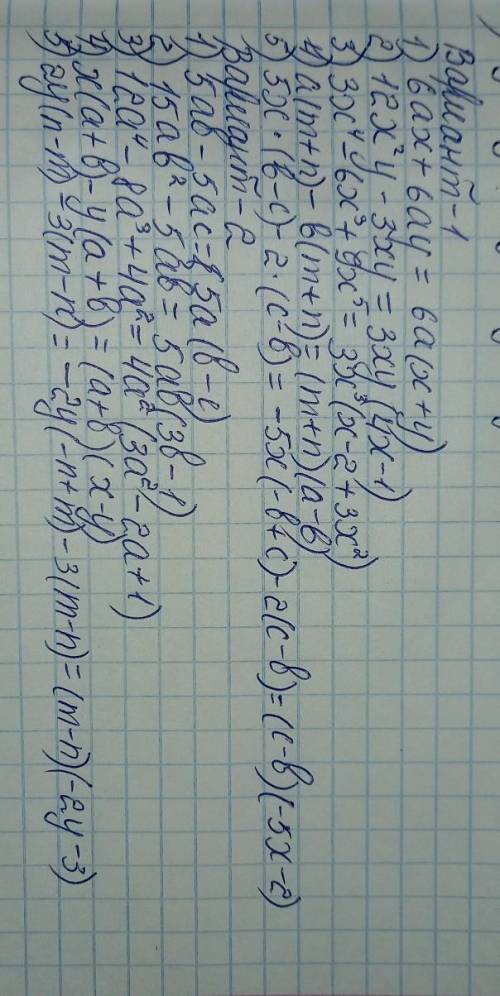 Вариант-1
1) 6ax + 6ay = 6a(x+y)
2) 12x²y - 3xy = 3xy(4x-1)
3) 3x⁴ - 6x³ + 9x⁵ = 3x³(x-2+3x²)
4) a(m+n) - b(m+n) = (m+n)(a-b)
5) 5x·(b-c) - 2·(c-b) = -5x(-b+c) - 2(c-b) = (c-b)(-5x-2)
Вариант-2
1) 5ab - 5ac = 5a(b-c)
2) 15ab² - 5ab = 5ab(3b-1)
3) 12a⁴ - 8a³ + 4a² = 4a²(3a²-2a+1)
4) x(a+b) - y(a+b) = (a+b)(x-y)
5) 2y(n-m) - 3(m-n) = -2y(-n+m) - 3(m-n) = (m-n)(-2y-3)